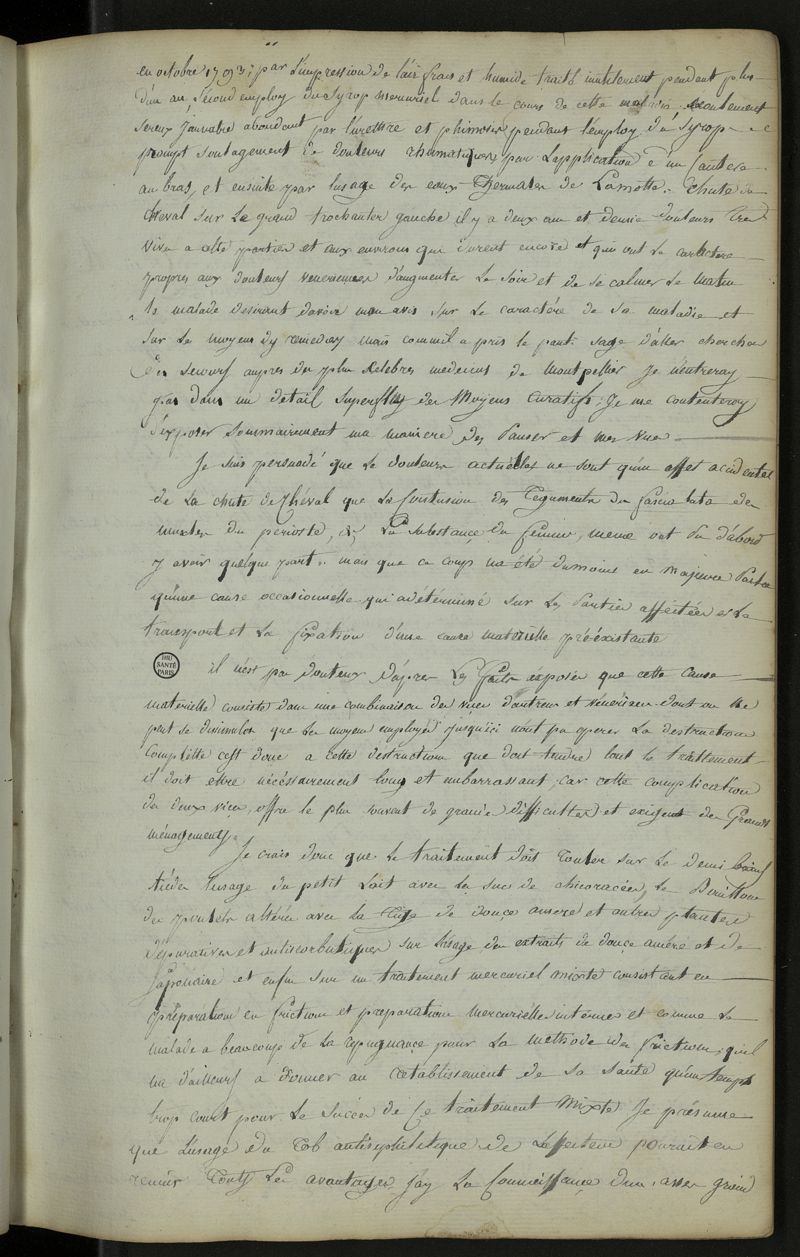 en octobre 1793, par l'impression de l'air frais et humide traité inutilement pendent plus
d'un an, second employ du Syrop mercuriel dans le cours de cette maladie Ecoulement
sereux jaunatre abondant par l'urethre et phimosis pendant l'employ du Syrop
prompt soulagement de douleurs rhumatiques par l'application d'un Cautere
au bras, et ensuite par lusage des eaux Thermales de Lamotte. Chute de
Cheval sur le grand trochanter gauche il y a deux ans et demie douleurs tres
vives a cette partie et aux environs qui durent encore et qui ont le caractere
propres aux douleurs veneriennes d'augmenter le soir et de se calmer le matin
le malade desirant d'avoir mon avis sur le caractére de sa maladie et
sur les moyens dy remedier mais comme il a pris le parti sage d'aller chercher
des secours aupres des plus celebres medecins de Montpellier je n'entreray
pas dans un detail superflu des Moyens Curatifs; Je me contenteray
d'exposer sommairement ma maniere de Panser et mes vues
Je suis persuadé que les douleurs actuelles ne sont qu'un effet accidentel
de la chute de Chéval que la Contusion des Teguments du fascia lata des
muscles du perioste, & la substance du femur, meme ont pu d'abord
y avoir quelque part. mais que ce coup na été dumoins en majeure Partie
qu'une cause occasionnelle qui a détérminé sur les Parties affectées le
transport et la fixation d'une cause materielle préexistante
il n'est pas douteux d'apres les faits exposés que cette cause
matérielle consiste dans une combinaison des vices dartreux et vénérien dont on ne
peut se dissimuler que les moyens employés jusqu'ici n'ont pu operer la destruction
Complette cest donc a cette destruction que doit tendre tout le traittement
il doit etre nécéssairement long et embarrassant, car cette complication
de deux vices, offre le plus souvent de grandes difficultes et exigent de Grands
ménagements.
Je crois donc que le traitement doit rouler sur les demi bains
tiédes lusage du petit lait avec les sucs de chicoracées, le Bouillon
de poulet altérés avec la tige de douce amere et autres plantes
dépuratives et antiscorbutiques sur l'usage des extraits de douce amére et de
saponaire et enfin sur un traitement mercuriel mixte consistant en
préparation en friction et préparation mercurielles internes et comme le
malade a beaucoup de la repugnance pour la methode des frictions, quil
na d'ailleurs a donner au retablissement de sa santé qu'un temps
trop court pour le succes de ce traitement Mixte je présume
que l'usage du rob antisyphilitique de Laffecteur pourait en
reunir touts les avantages jay la Connoissance d'un assez grand
BIU SANTÉ PARIS